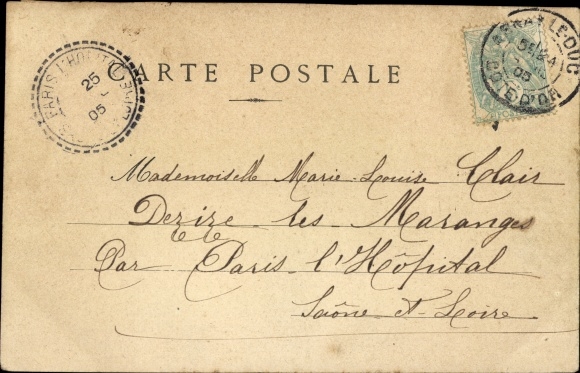 CARTE POSTALE
PARIS-L'HOPITAL
25
05
ARNAY-LE-DUC
05
COTE-D'OR
Mademoiselle Marie-Louise Clair
Dezize les Maranges
Par Paris l'Hôpital
Saône et Loire